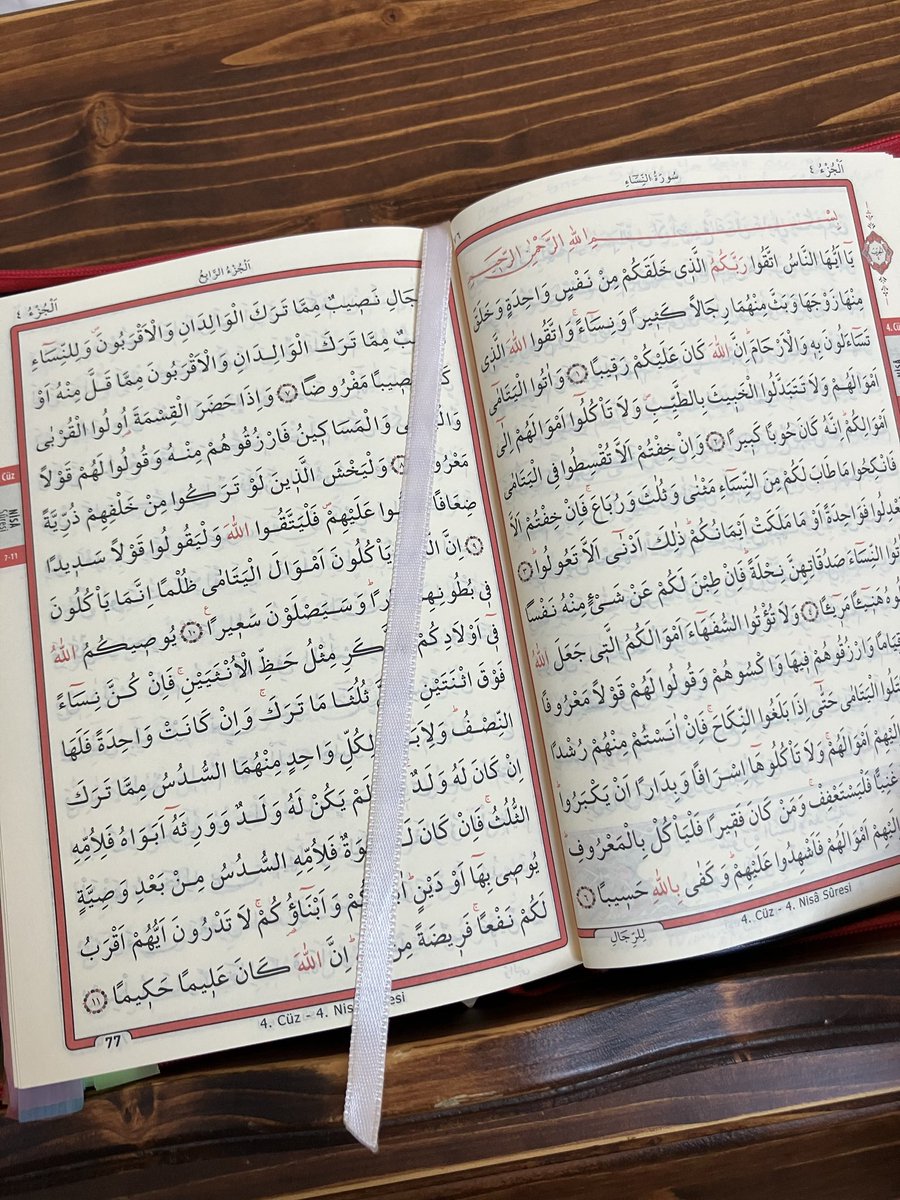 اَلْجُزْءُ ٤
سُورَةُ النِّسَٓاءِ
بِسْــــمِ اللهِ الرَّحْمٰنِ الرَّحٖيمِ
يَٓا اَيُّهَا النَّاسُ اتَّقُوا رَبَّكُمُ الَّذٖي خَلَقَكُمْ مِنْ نَفْسٍ وَاحِدَةٍ وَخَلَقَ
مِنْهَا زَوْجَهَا وَبَثَّ مِنْهُمَا رِجَالاً كَثٖيراً وَنِسَٓاءًۚ وَاتَّقُوا اللهَ الَّذٖي
تَسَٓاءَلُونَ بِهٖ وَالْاَرْحَامَۜ اِنَّ اللهَ كَانَ عَلَيْكُمْ رَقٖيباً ١ وَاٰتُوا الْيَتَامٰٓى
اَمْوَالَهُمْ وَلَا تَتَبَدَّلُوا الْخَبٖيثَ بِالطَّيِّبِۖ وَلَا تَأْكُلُٓوا اَمْوَالَهُمْ اِلٰٓى
اَمْوَالِكُمْۜ اِنَّهُ كَانَ حُوباً كَبٖيراً ٢ وَاِنْ خِفْتُمْ اَلَّا تُقْسِطُوا فِي الْيَتَامٰى
فَانْكِحُوا مَا طَابَ لَكُمْ مِنَ النِّسَٓاءِ مَثْنٰى وَثُلٰثَ وَرُبَاعَۚ فَاِنْ خِفْتُمْ اَلَّا
تَعْدِلُوا فَوَاحِدَةً اَوْ مَا مَلَكَتْ اَيْمَانُكُمْۜ ذٰلِكَ اَدْنٰٓى اَلَّا تَعُولُواۜ ٣
النِّسَٓاءَ صَدُقَاتِهِنَّ نِحْلَةًۜ فَاِنْ طِبْنَ لَكُمْ عَنْ شَيْءٍ مِنْهُ نَفْساً
هَنٖٓيـٔاً مَرٖٓيـٔاً ٤ وَلَا تُؤْتُوا السُّفَهَٓاءَ اَمْوَالَكُمُ الَّتٖي جَعَلَ اللهُ
قِيَاماً وَارْزُقُوهُمْ فٖيهَا وَاكْسُوهُمْ وَقُولُوا لَهُمْ قَوْلاً مَعْرُوفاً
الْيَتَامٰى حَتّٰٓى اِذَا بَلَغُوا النِّكَاحَۚ فَاِنْ اٰنَسْتُمْ مِنْهُمْ رُشْداً
اِلَيْهِمْ اَمْوَالَهُمْۚ وَلَا تَأْكُلُوهَٓا اِسْرَافاً وَبِدَاراً اَنْ يَكْبَرُواۜ
غَنِياًّ فَلْيَسْتَعْفِفْۚ وَمَنْ كَانَ فَقٖيراً فَلْيَأْكُلْ بِالْمَعْرُوفِۜ
اِلَيْهِمْ اَمْوَالَهُمْ فَاَشْهِدُوا عَلَيْهِمْۜ وَكَفٰى بِاللهِ حَسٖيباً ٦
لِلرِّجَالِ
4. Cüz - 4. Nisâ Sûresi
اَلْجُزْءُ الرَّابِعُ
اَلْجُزْءُ ٤
نَصٖيبٌ مِمَّا تَرَكَ الْوَالِدَانِ وَالْاَقْرَبُونَۖ وَلِلنِّسَٓاءِ
مِمَّا تَرَكَ الْوَالِدَانِ وَالْاَقْرَبُونَ مِمَّا قَلَّ مِنْهُ اَوْ
نَصٖيباً مَفْرُوضاً ٧ وَاِذَا حَضَرَ الْقِسْمَةَ اُولُوا الْقُرْبٰى
وَالْمَسَاكٖينُ فَارْزُقُوهُمْ مِنْهُ وَقُولُوا لَهُمْ قَوْلاً
٨ وَلْيَخْشَ الَّذٖينَ لَوْ تَرَكُوا مِنْ خَلْفِهِمْ ذُرِّيَّةً
ضِعَافاً عَلَيْهِمْۖ فَلْيَتَّقُوا اللهَ وَلْيَقُولُوا قَوْلاً سَدٖيداً
٩ اِنَّ يَأْكُلُونَ اَمْوَالَ الْيَتَامٰى ظُلْماً اِنَّمَا يَأْكُلُونَ
فٖي بُطُونِهِمْ وَسَيَصْلَوْنَ سَعٖيراً ١٠ يُوصٖيكُمُ اللهُ
فٖٓي اَوْلَادِكُمْ مِثْلُ حَظِّ الْاُنْثَيَيْنِۚ فَاِنْ كُنَّ نِسَٓاءً
فَوْقَ اثْنَتَيْنِ ثُلُثَا مَا تَرَكَۚ وَاِنْ كَانَتْ وَاحِدَةً فَلَهَا
النِّصْفُۜ لِكُلِّ وَاحِدٍ مِنْهُمَا السُّدُسُ مِمَّا تَرَكَ
اِنْ كَانَ لَهُ وَلَدٌۚ لَمْ يَكُنْ لَهُ وَلَدٌ وَوَرِثَهُٓ اَبَوَاهُ فَلِاُمِّهِ
الثُّلُثُۚ فَاِنْ كَانَ فَلِاُمِّهِ السُّدُسُ مِنْ بَعْدِ وَصِيَّةٍ
يُوصٖي بِهَٓا اَوْ دَيْنٍۜ وَاَبْنَٓاؤُكُمْۚ لَا تَدْرُونَ اَيُّهُمْ اَقْرَبُ
لَكُمْ نَفْعاًۚ فَرٖيضَةً اِنَّ اللهَ كَانَ عَلٖيماً حَكٖيماً ١١
4. Cüz - 4.
77
Cüz
NİSÂ
Sûresi
7-11